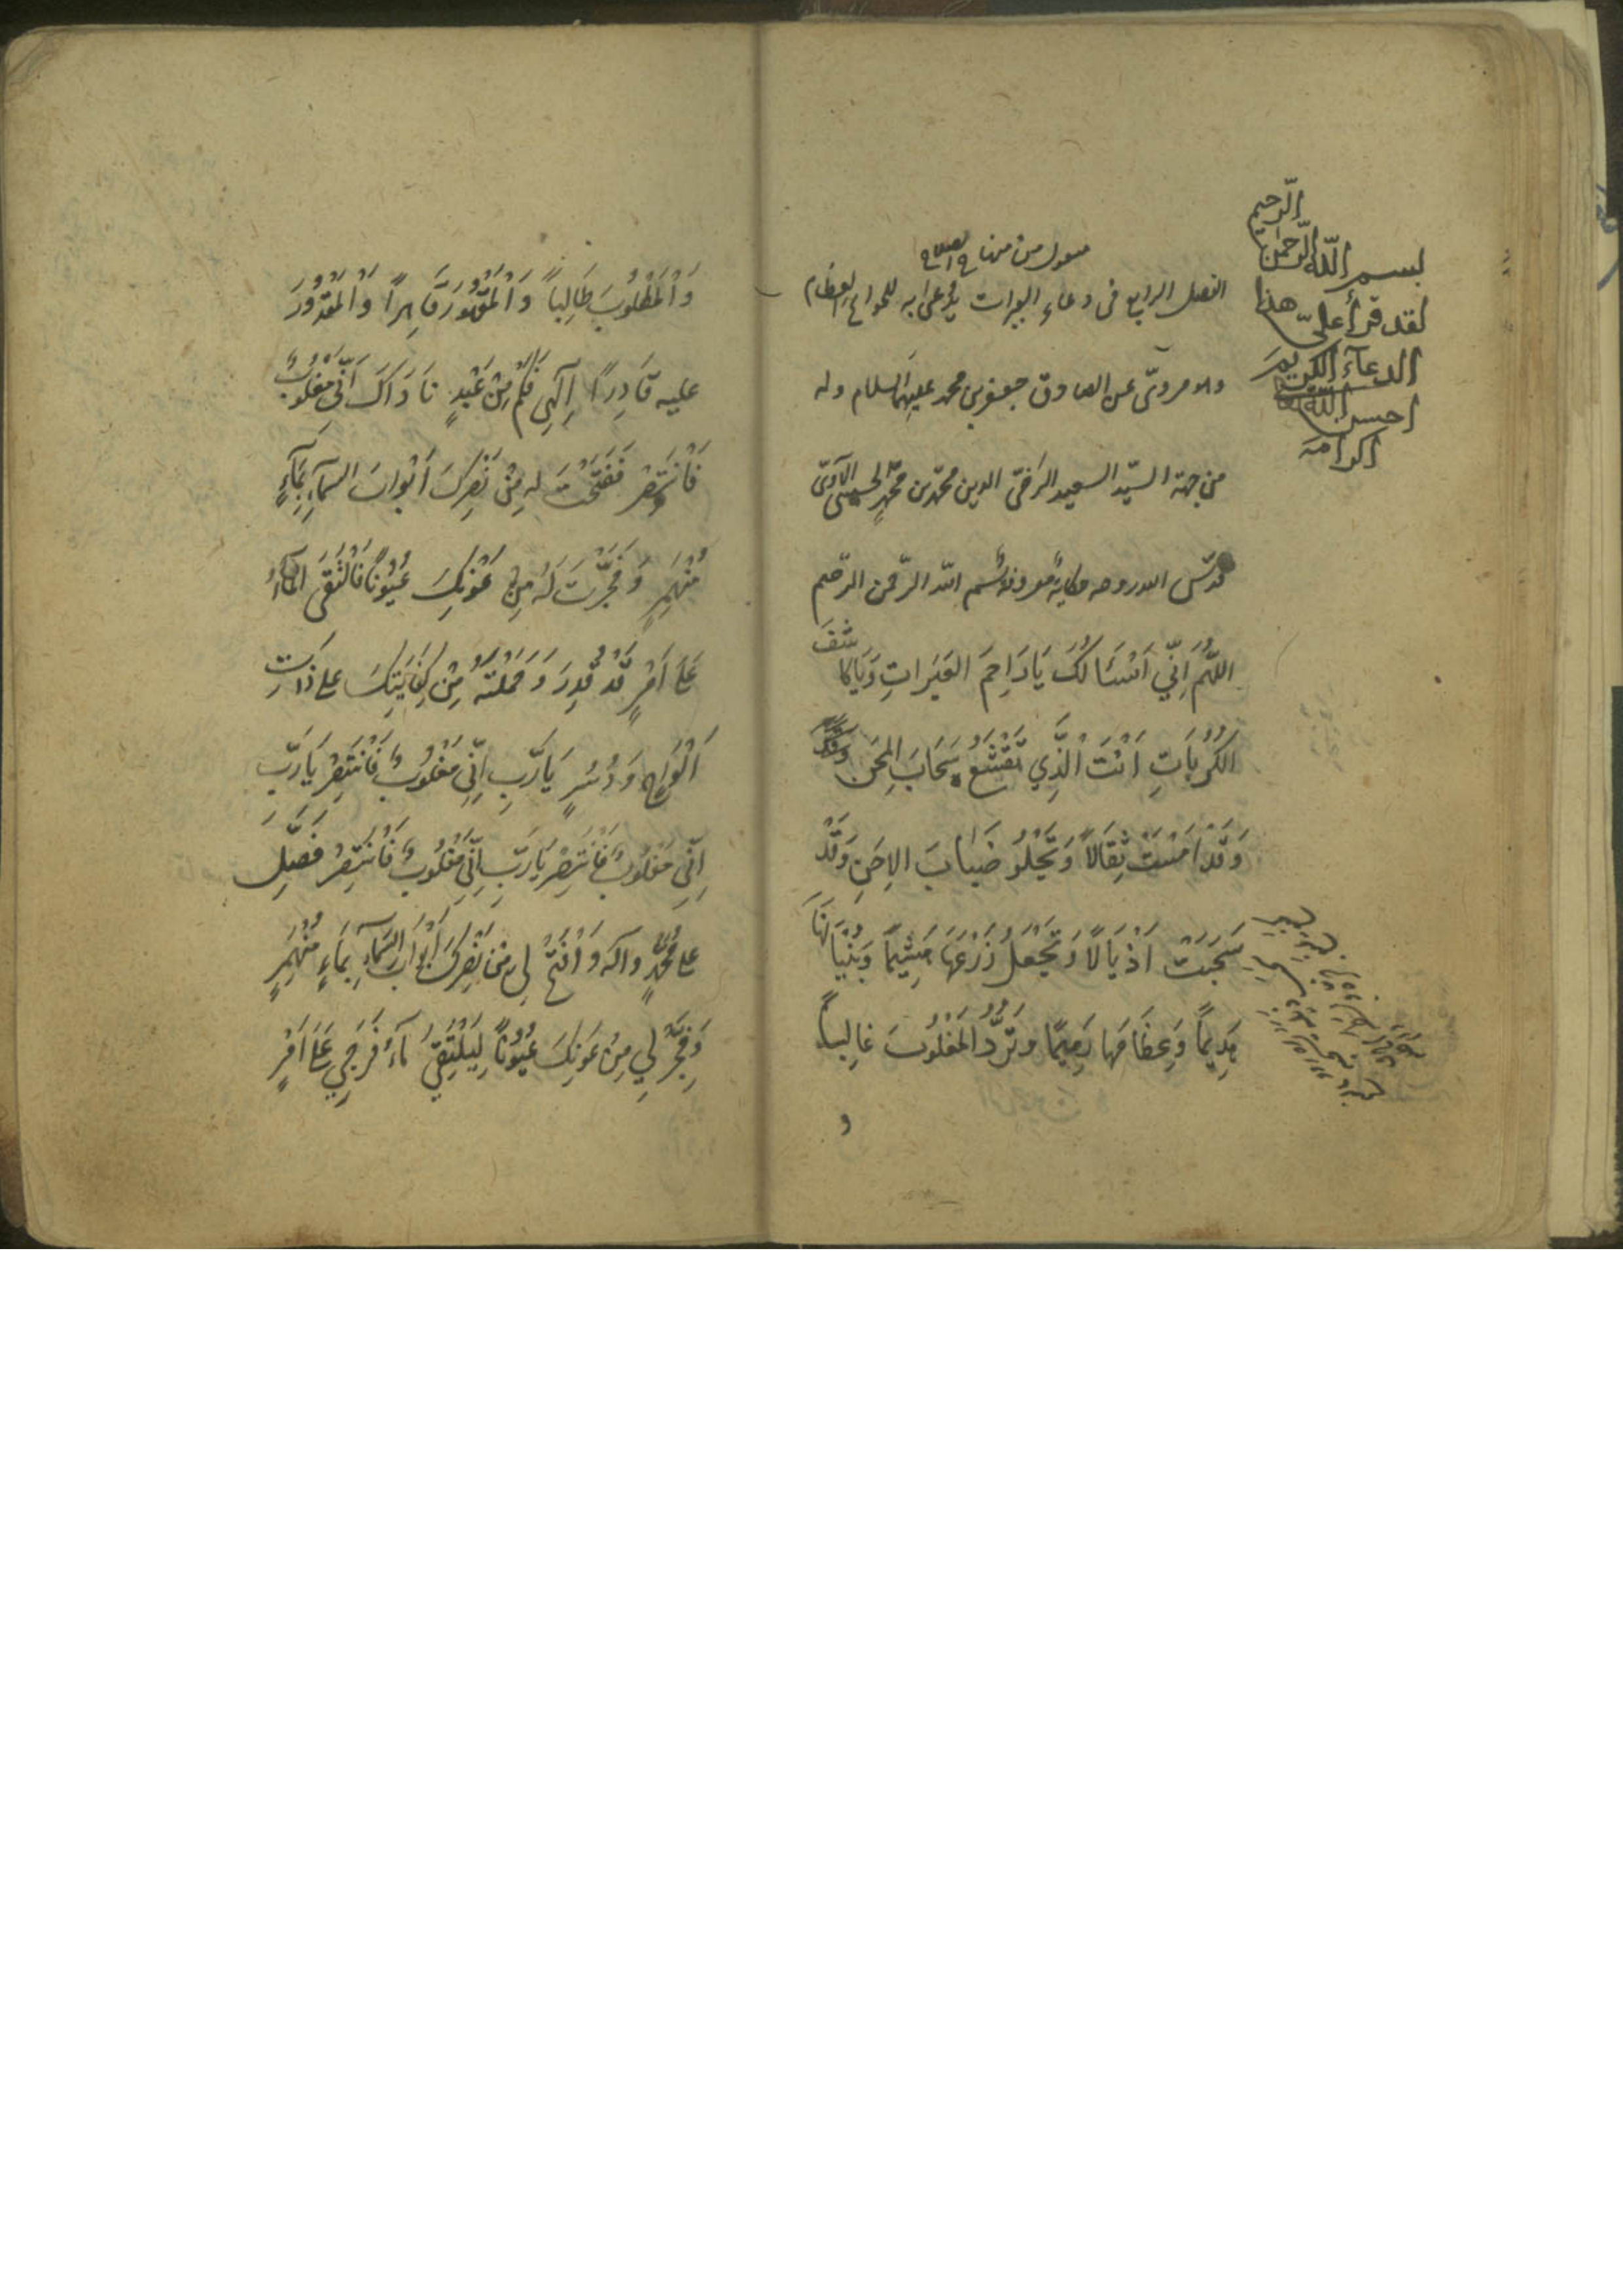 منقول من منهاج الصلاح
الفصل الرابع فى دعاء العبرات يدعى به للحوائج العظام
وهو مروىّ عن الصادق جعفر بن محمد عليهما السلام وله
من جهة السيّد السعيد الرَضىّ الدين محمّد بن محمّدٍ الحسينى الآوىّ
قدّس الله روحه حكايةٌ معروفة بسم الله الرّحمن الرّحيم
اللّهُمَّ اِنّي اَسْئَالُكَ يَا رَاحِمَ العَبَراتِ وَيَا كاشِفَ
الكُرُبَاتِ اَنْتَ الَّذِي تَقْشَعُ سَحَابَ المِحَنِ
وَقَدْ اَمْسَتْ ثِقَالاً وَتَجْلُو ضَبَابَ الاِحَنِ وَقَدْ
سَحَبَتْ اَذْيَالاً وَتَجْعَلُ زَرْعَهَا هَشِيْماً وَبُنْيَانَهَا
هَدِيْماً وَعِظَامَها رَمِيْمًا وتَرُدُّ المَغْلُوْبَ غَالِباً
و
بسم اللّه الرّحمن الرّحيم
لقد قرأ علىّ هذا
الدعآءَ الكريمَ
احسن اللّه
اكرامه
وَالْمَطْلُوْبَ طَالِباً وَالْمَقْهُوْرَ قَاهِراً وَالْمَقْدُوْرَ
عليه قَادِراً اِلهِي فَكَمْ مِنْ عَبْدٍ نَادَاكَ اَنّي مَغْلُوْبٌ
فَانْتَصِرْ فَفَتَحْتَ له مِنْ نَصْرِكَ اَبْوابَ السمآءِ بِمَآءٍ
مُنْهَمِرٍ وَفَجَّرْتَ لَهُ مِنْ عَوْنِكَ عُيُوْنًا فَالْتَقَى المآءُ
عَلَى اَمْرٍ قَدْ قُدِرَ وَحَمَلْتَهُ مِنْ كِفَايَتِكَ على ذَاتِ
اَلْوَاحٍ وَدُسُرٍ يَا رَبِّ اِنّي مَغْلُوْبٌ فَانْتَصِرْ يَا رَبِّ
اِنّي مَغْلُوْبٌ فَانْتَصِرْ يَا رَبِّ اِنّي مَغْلُوْبٌ فَانْتَصِرْ فَصَلِّ
على مُحَمَّدٍ واله وَافْتَحْ لي من نَصْرِكَ اَبْوَابَ السّمَآءِ بِمَاءٍ مُنْهَمِرٍ
وَفَجِّرْ لِي مِنْ عَوْنِكَ عُيُوْناً لِيَلْتَقِيَ مَآءُ فَرَجِي عَلَى اَمْرٍ